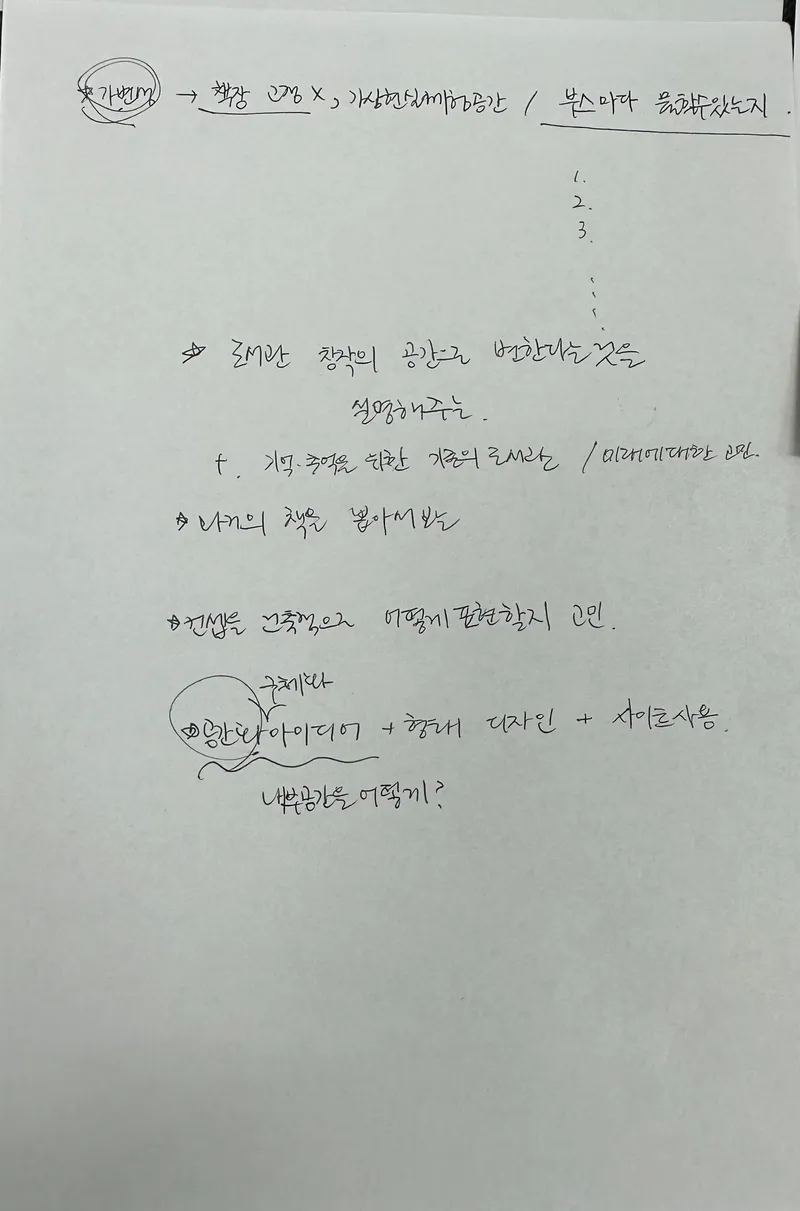 ☆ 가변성 → 책장 고정 X, 가상현실체험공간 / 부스마다 뭘할수있는지.
1.
2.
3.
☆ 도서관 창작의 공간으로 변한다는 것을
설명해주는.
+. 기억·추억을 위한 기존의 도서관는 / 미래에대한 고민.
☆ 나거의 책을 뽑아서 보는
☆ 컨셉을 건축적으로 어떻게 표현할지 고민.
구체화
☆ 공간화 아이디어 + 형태 디자인 + 사이트사용.
내부공간을 어떻게?